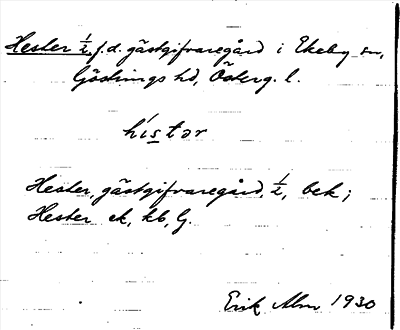 Hester ½, f.d. gästgifvaregård i Ekeby sn,
Göstrings hd, Österg. l.
hı́stər
Hester, gästgifvaregård, ½, bek;
Hester ek, kb, G.
Erik Alm 1930